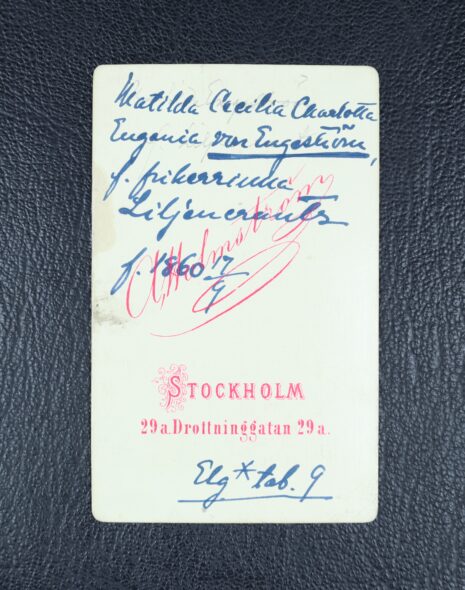 Matilda Cecilia Charlotta
Eugenia von Engeström,
f. friherrinna
Liljencrantz
f. 1860 17/9
A. Holmström
STOCKHOLM
29a. Drottninggatan 29a.
Elg * tab. 9